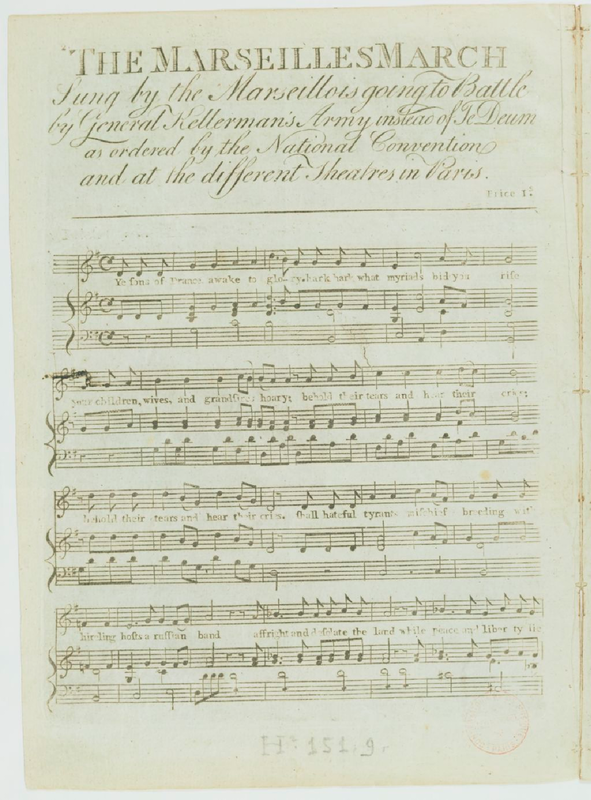 THE MARSEILLES MARCH
Sung by the Marseillois going to Battle
by General Kellerman's Army instead of Te Deum
as ordered by the National Convention
and at the different Theatres in Paris.
Price 1s
Ye sons of France awake to glory, hark hark what myriads bid you rise
your children, wives, and grandsires hoary; behold their tears and hear their cries;
behold their tears and hear their cries. shall hateful tyrants mischief breeding with
hireling hosts a ruffian band affright and desolate the land while peace and liberty lie
H. 151. 9.